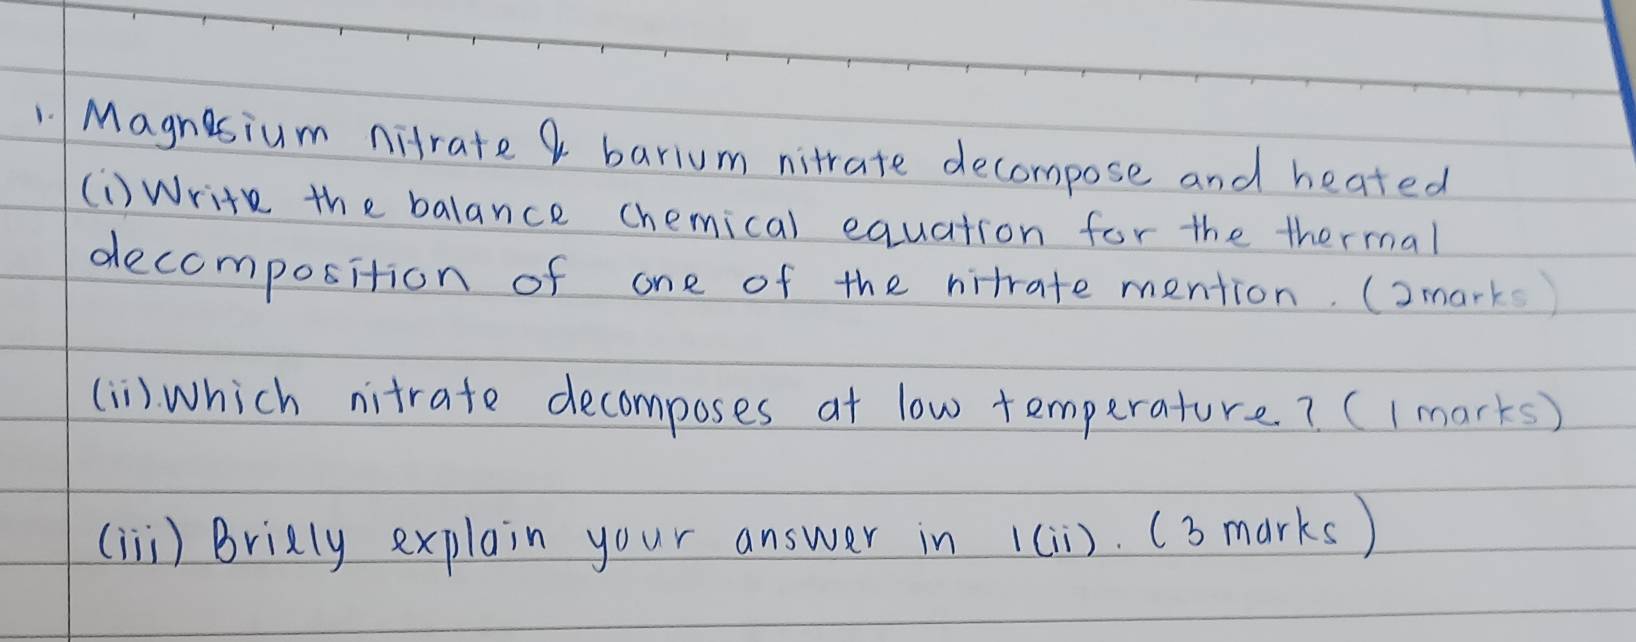 1. Magnesium nitrate & barium nitrate decompose and heated
(i) Write the balance chemical equation for the thermal
decomposition of one of the nitrate mention. (2 marks)
(ii). Which nitrate decomposes at low temperature? (1 marks)
(iii) Briely explain your answer in 1(ii). (3 marks)